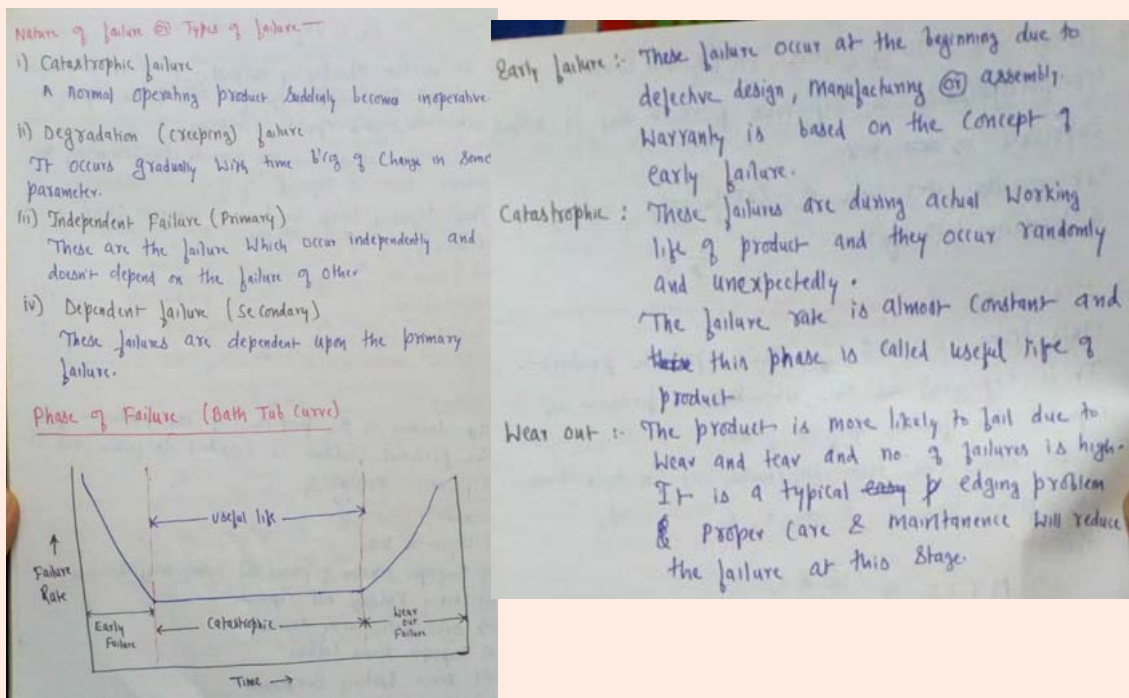 Nature of failure or Types of failure —
i) Catastrophic failure
A normal operating product suddenly becomes inoperative
ii) Degradation (creeping) failure
It occurs gradually with time b'cg of change in some
parameter.
iii) Independent Failure (Primary)
These are the failure which occur independently and
doesn't depend on the failure of other
iv) Dependent failure (Secondary)
These failures are dependent upon the primary
failure.
Phase of Failure (Bath Tub Curve)
useful life
↑
Failure
Rate
Early
Failure
Catastrophic
Wear
out
Failure
Time →
Early failure :- These failure occur at the beginning due to
defective design, manufacturing or assembly.
Warranty is based on the concept of
early failure.
Catastrophic : These failures are during actual working
life of product and they occur randomly
and unexpectedly.
The failure rate is almost constant and
this phase is called useful life of
product
Wear out :- The product is more likely to fail due to
wear and tear and no. of failures is high.
It is a typical edging problem
& Proper care & maintanence will reduce
the failure at this stage.